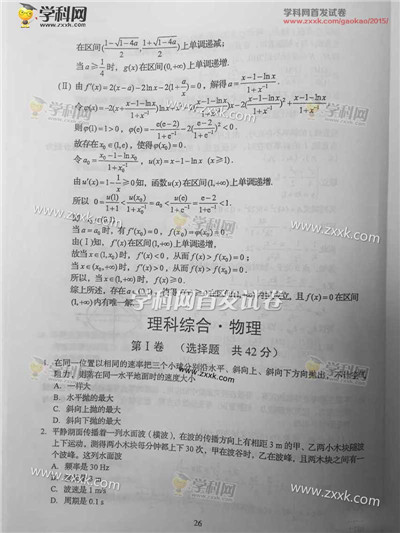 学科网
www.zxxk.com
学科网首发试卷
www.zxxk.com/gaokao/2015/
在区间((1-√(1-4a))/2, (1+√(1-4a))/2)上单调递减;
当a≥1/4时, g(x)在区间(0,+∞)上单调递增.
(Ⅱ) 由f'(x)=2(x-a)-2lnx-2(1+a/x)=0, 解得a=(x-1-lnx)/(1+x⁻¹)
则φ(1)=1>0, φ(e)=-e(e-2)/(1+e⁻¹)-2((e-2)/(1+e⁻¹))²<0.
故存在x₀∈(1,e), 使得φ(x₀)=0.
令a₀=(x₀-1-lnx₀)/(1+x₀⁻¹), u(x)=x-1-lnx (x≥1).
由u'(x)=1-1/x≥0知, 函数u(x)在区间(1,+∞)上单调递增.
所以 0=u(1)/(1+1)<u(x₀)/(1+x₀⁻¹)=a₀<u(e)/(1+e⁻¹)=(e-2)/(1+e⁻¹)<1
当a=a₀时, 有f'(x₀)=0, f(x₀)=φ(x₀)=0.
由(Ⅰ)知, f'(x)在区间(1,+∞)上单调递增,
故当x∈(1,x₀)时, f'(x)<0, 从而f(x)>f(x₀)=0;
当x∈(x₀,+∞)时, f'(x)>0, 从而f(x)>f(x₀)=0.
所以, 当x∈
综上所述, 存在a∈ 立, 且f(x)=0在区间
(1,+∞)内有唯一解.
学科网首发试卷
理科综合·物理
第Ⅰ卷 (选择题 共42分)
1. 在同一位置以相同的速率把三个小球分别沿水平、斜向上、斜向下方向抛出, 不计空气
阻力, 则落在同一水平地面时的速度大小
A. 一样大
B. 水平抛的最大
C. 斜向上抛的最大
D. 斜向下抛的最大
2. 平静湖面传播着一列水面波(横波), 在波的传播方向上有相距3 m的甲、乙两小木块随波
上下运动, 测得两小木块每分钟都上下30次, 甲在波谷时, 乙在波峰, 且两木块之间有一
个波峰, 这列水面波
A. 频率是30 Hz
C. 波速是1 m/s
D. 周期是0.1 s
26